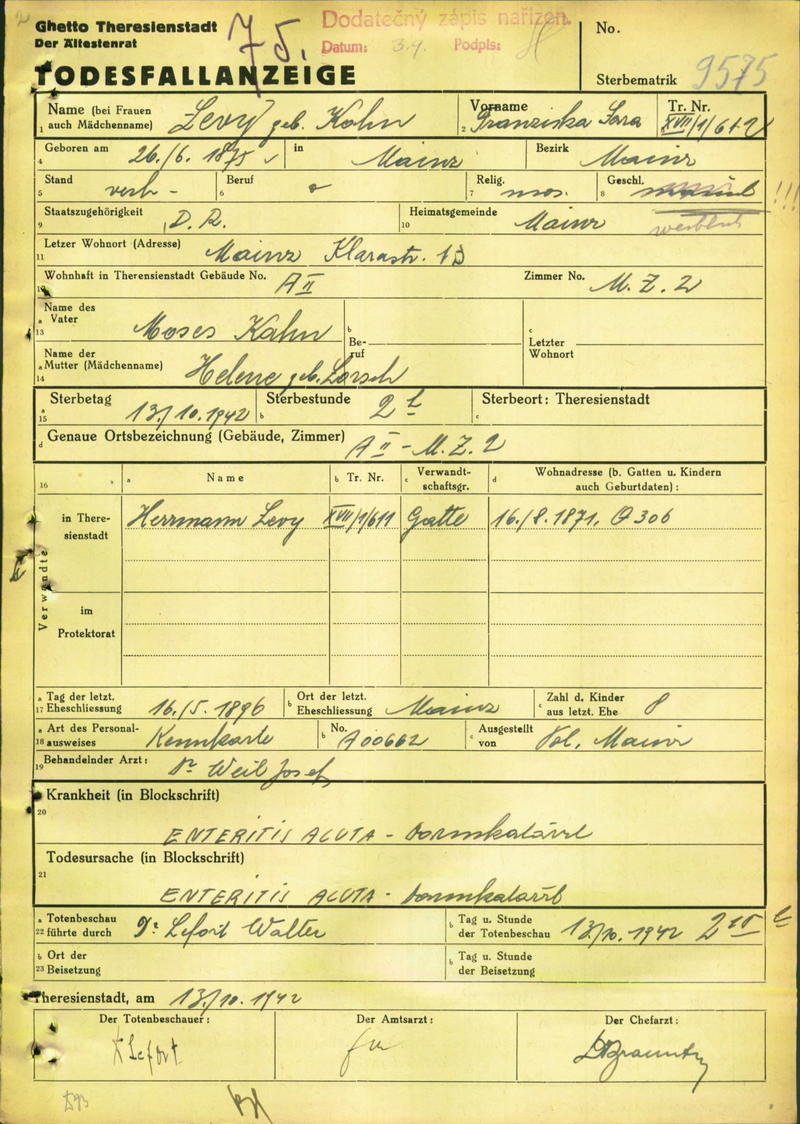 Ghetto Theresienstadt
Der Ältestenrat
75.
Dodatečný zápis nařízen.
Datum: 3.9. Podpis:
No.
TODESFALLANZEIGE
Sterbematrik 9575
Name (bei Frauen auch Mädchenname) Levy geb. Kahn
1
Vorname Franziska Sara
2
Tr. Nr. XVII/1/612
Geboren am 26./6. 1875 in Mainz Bezirk Mainz
4
Stand verh - Beruf Relig. mos. Geschl. weiblich !!!
5 6 7 8
Staatszugehörigkeit D.R. Heimatsgemeinde Mainz
9 10
Letzer Wohnort (Adresse) Mainz Klarastr. 13
11
Wohnhaft in Therensienstadt Gebäude No. A II Zimmer No. M.Z. 2
Name des Vater Moses Kahn
a 13
b Beruf
c Letzter Wohnort
Name der Mutter (Mädchenname) Helene geb. Lorsch
a 14
Sterbetag 13./10. 1942 Sterbestunde 2 h Sterbeort: Theresienstadt
a 15 b c
d Genaue Ortsbezeichnung (Gebäude, Zimmer) A II - M.Z. 2
16 a Name b Tr. Nr. c Verwandtschaftsgr. d Wohnadresse (b. Gatten u. Kindern auch Geburtdaten):
Verwandte
in Theresienstadt Herrmann Levy XVII/1/611 Gatte 16./8. 1871. Q 306
im Protektorat
a 17 Tag der letzt. Eheschliessung 16./5. 1896 b Ort der letzt. Eheschliessung Mainz c Zahl d. Kinder aus letzt. Ehe
a 18 Art des Personalausweises Kennkarte b No. A00662 c Ausgestellt von Pol. Mainz
19 Behandelnder Arzt: Dr Weil Josef
Krankheit (in Blockschrift)
20
ENTERITIS ACUTA - Darmkatarrh
Todesursache (in Blockschrift)
21
ENTERITIS ACUTA - Darmkatarrh
a 22 Totenbeschau führte durch Dr. Lefort Walter b Tag u. Stunde der Totenbeschau 13./10. 1942 2 15 h
b 23 Ort der Beisetzung b Tag u. Stunde der Beisetzung
Theresienstadt, am 13./10. 1942
Der Totenbeschauer: Der Amtsarzt: Der Chefarzt:
Lefort